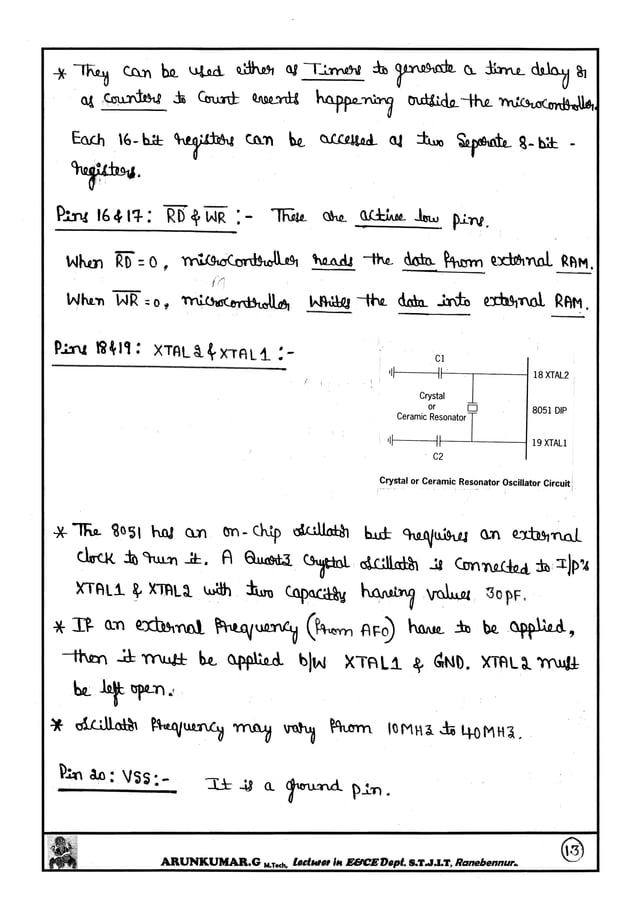 * They can be used either as Timers to generate a time delay or
as counters to count events happening outside the microcontroller.
Each 16-bit registers can be accessed as two separate 8-bit -
registers.
Pins 16 & 17 : R̅D̅ & W̅R̅ :- These are active low pins.
When R̅D̅ = 0, microcontroller reads the data from external RAM.
When W̅R̅ = 0, microcontroller writes the data into external RAM.
Pins 18 & 19 : XTAL2 & XTAL1 :-
C1
18 XTAL2
Crystal
or
Ceramic Resonator
8051 DIP
19 XTAL1
C2
Crystal or Ceramic Resonator Oscillator Circuit
* The 8051 has an on-chip oscillator but requires an external
clock to run it. A Quartz crystal oscillator is connected to I/p's
XTAL1 & XTAL2 with two capacity having values 30pF.
* If an external frequency (from AFO) have to be applied,
then it must be applied b/w XTAL1 & GND. XTAL2 must
be left open.
* oscillator frequency may vary from 10MHz to 40MHz.
Pin 20 : VSS :- It is a ground pin.
ARUNKUMAR.G M.Tech, Lecturer in E&CE Dept. S.T.J.I.T, Ranebennur.
13